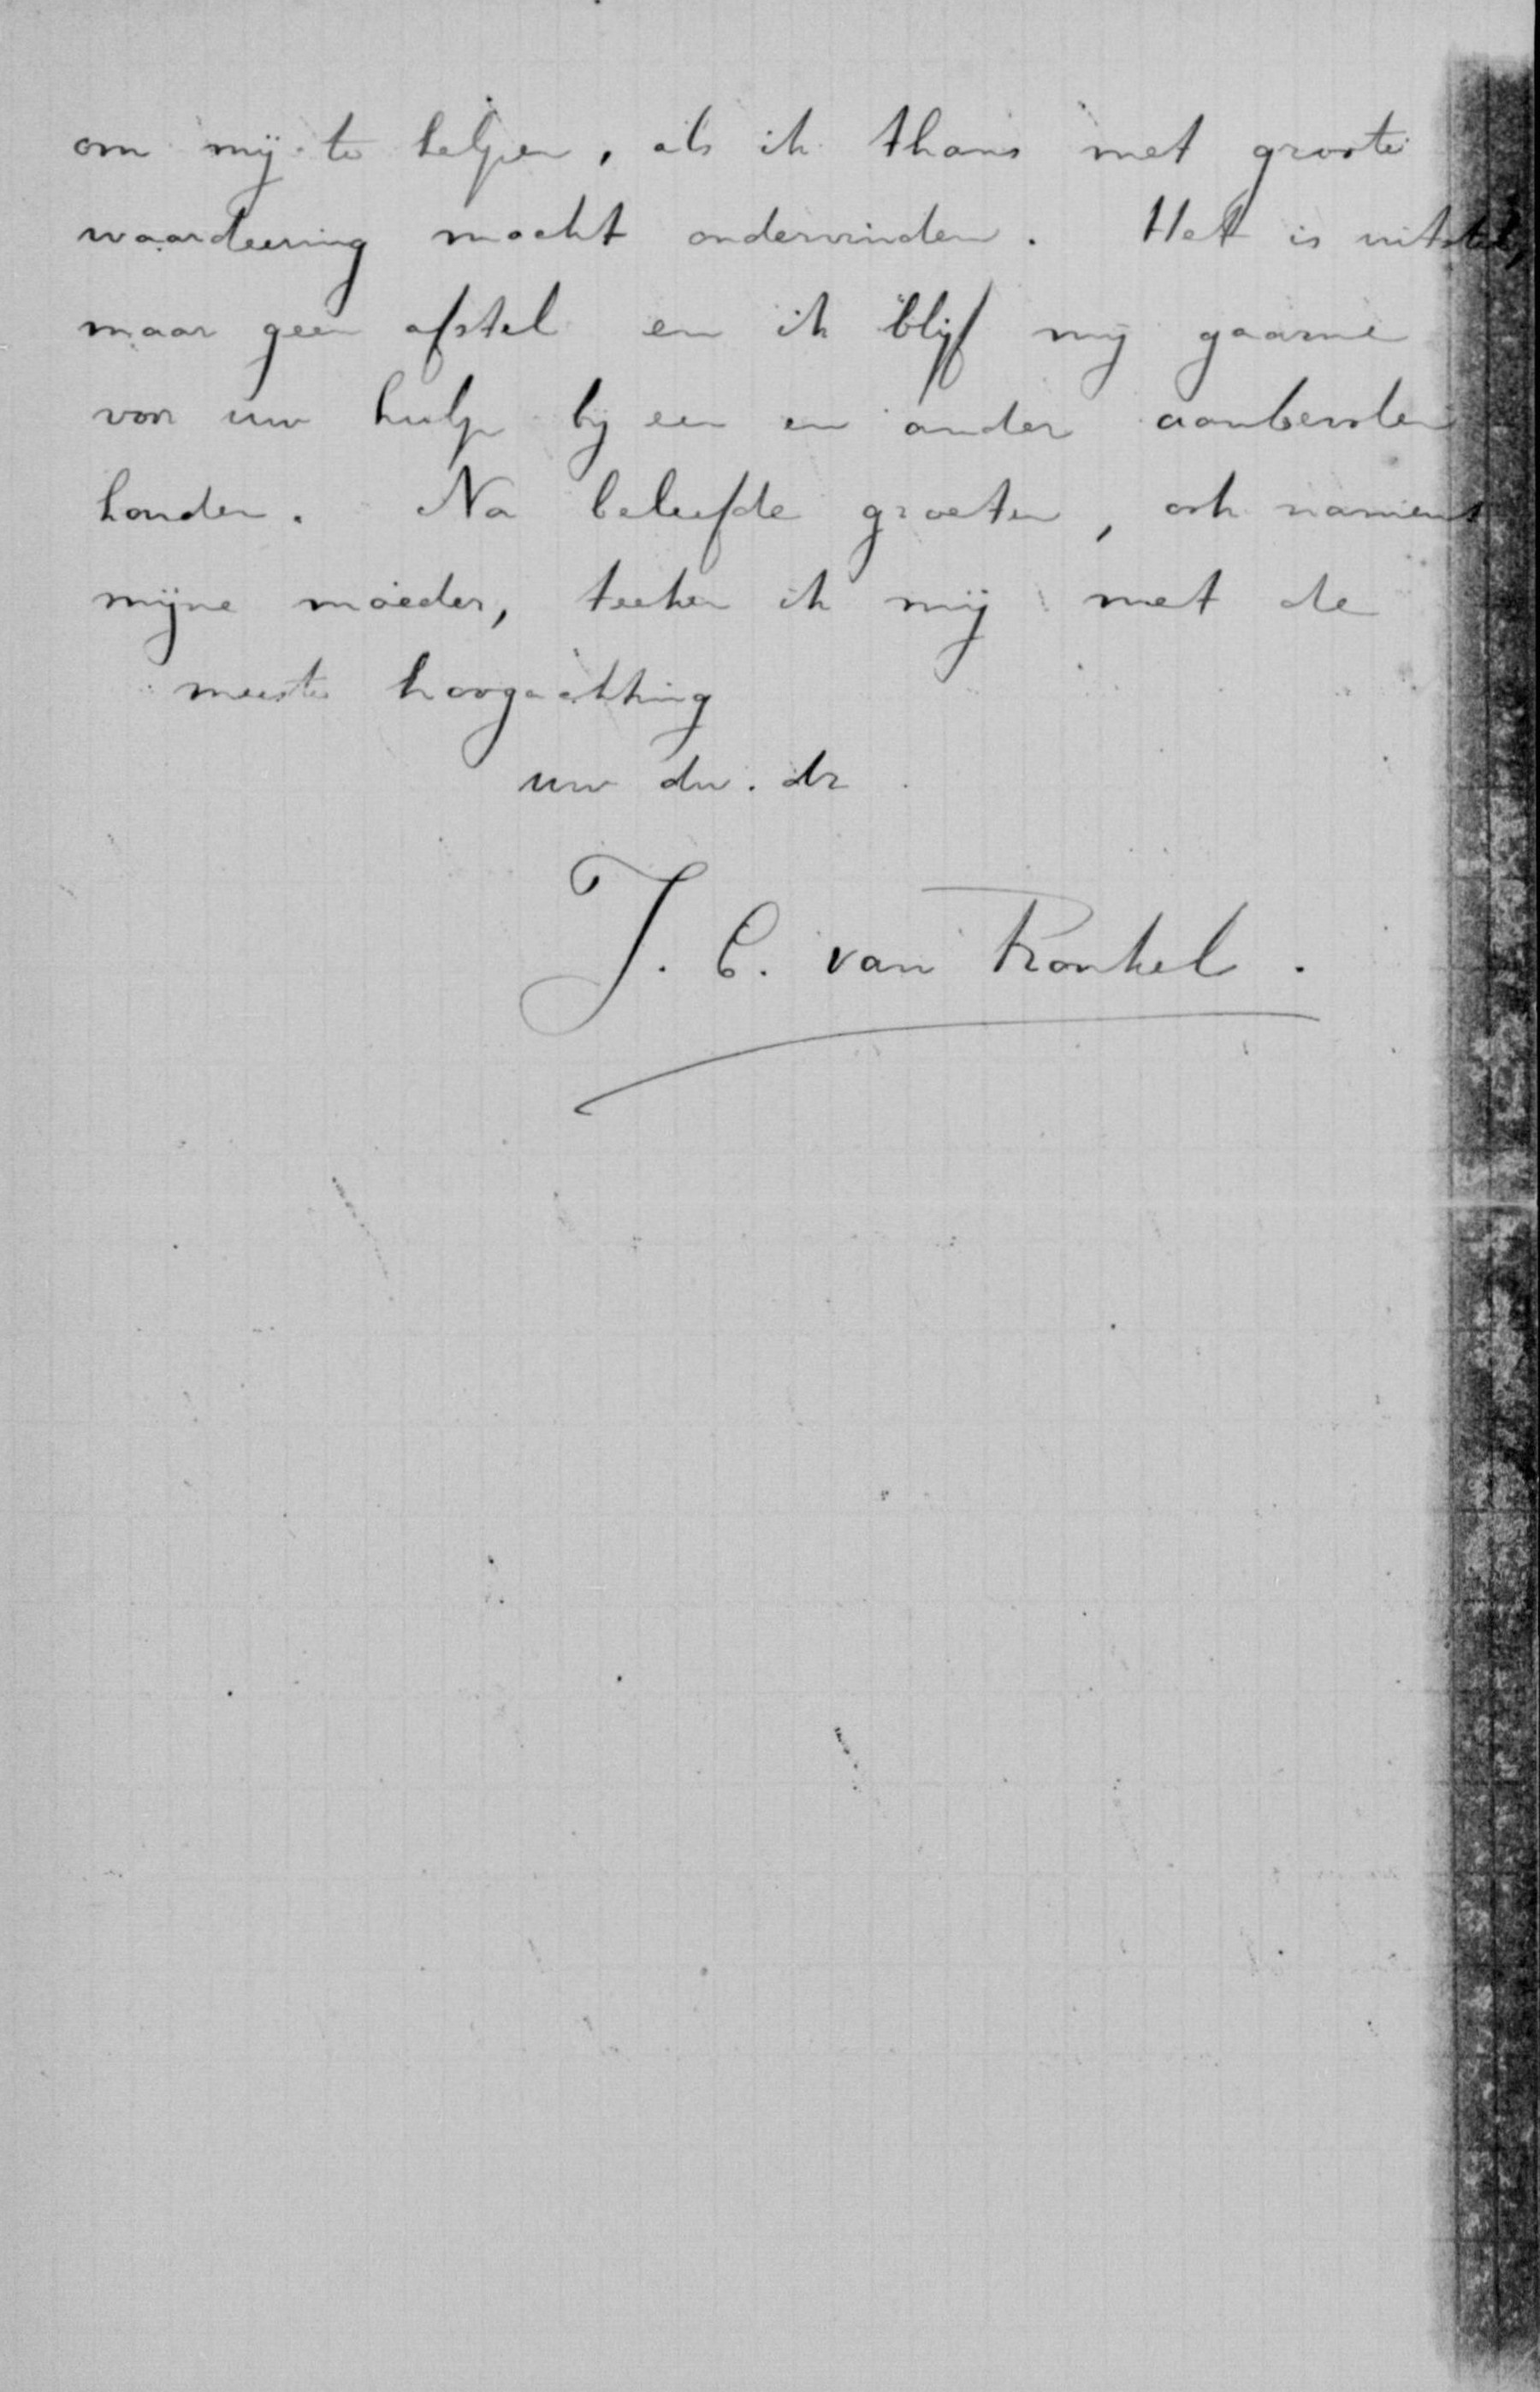 om mij te helpen, als ik thans met groote
waardeering mocht ondervinden. Het is uitstel,
maar geen afstel en ik blijf mij gaarne
voor uw hulp bij een en ander aanbevolen
houden. Na beleefde groeten, ook namens
mijne moeder, teeken ik mij met de
meeste hoogachting
uw dw. dr
J. C. van Ronkel.